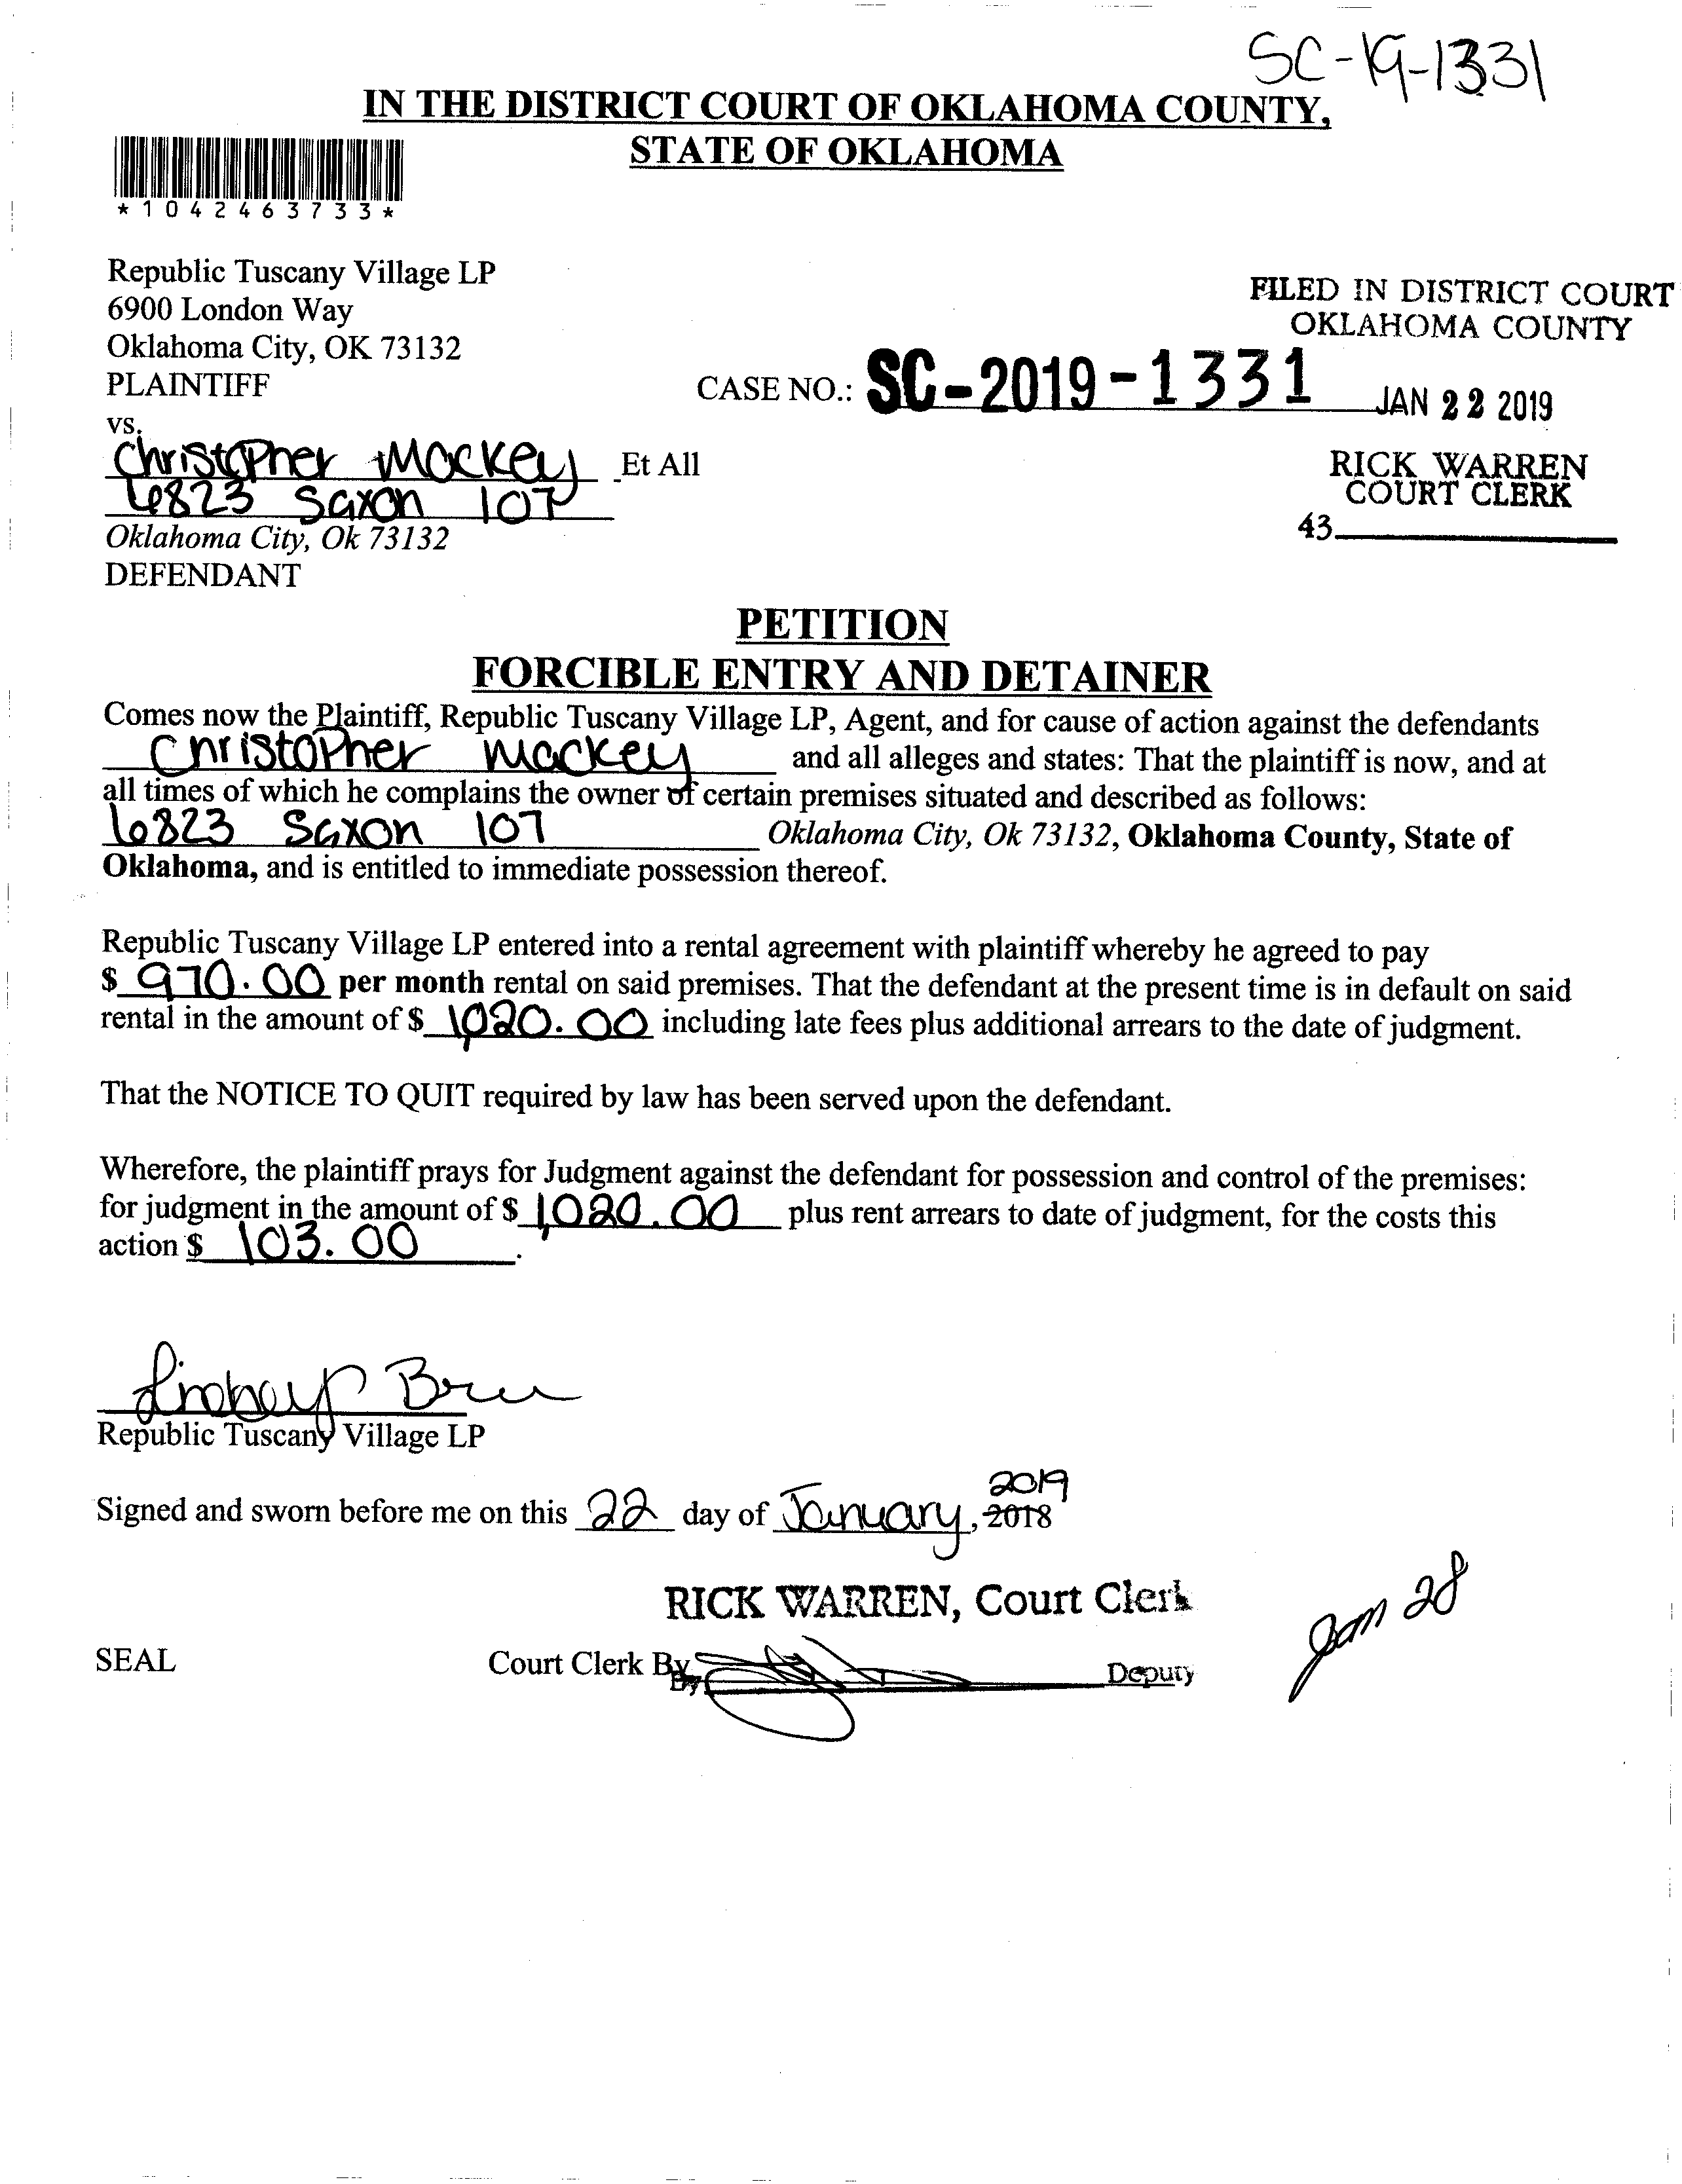 SC-19-1331
IN THE DISTRICT COURT OF OKLAHOMA COUNTY,
STATE OF OKLAHOMA
*1042463733*
Republic Tuscany Village LP
6900 London Way
Oklahoma City, OK 73132
PLAINTIFF
vs.
FILED IN DISTRICT COURT
OKLAHOMA COUNTY
CASE NO.: SC-2019-1331
JAN 22 2019
Christopher Mackey Et All
6823 Saxon 107
Oklahoma City, Ok 73132
DEFENDANT
RICK WARREN
COURT CLERK
43
PETITION
FORCIBLE ENTRY AND DETAINER
Comes now the Plaintiff, Republic Tuscany Village LP, Agent, and for cause of action against the defendants
Christopher Mackey and all alleges and states: That the plaintiff is now, and at
all times of which he complains the owner of certain premises situated and described as follows:
6823 Saxon 107 Oklahoma City, Ok 73132, Oklahoma County, State of
Oklahoma, and is entitled to immediate possession thereof.
Republic Tuscany Village LP entered into a rental agreement with plaintiff whereby he agreed to pay
$ 970.00 per month rental on said premises. That the defendant at the present time is in default on said
rental in the amount of $ 1,020.00 including late fees plus additional arrears to the date of judgment.
That the NOTICE TO QUIT required by law has been served upon the defendant.
Wherefore, the plaintiff prays for Judgment against the defendant for possession and control of the premises:
for judgment in the amount of $ 1,020.00 plus rent arrears to date of judgment, for the costs this
action $ 103.00.
Republic Tuscany Village LP
2019
Signed and sworn before me on this 22 day of January, 2018
RICK WARREN, Court Clerk
SEAL
Court Clerk By
By Deputy
Jan 28